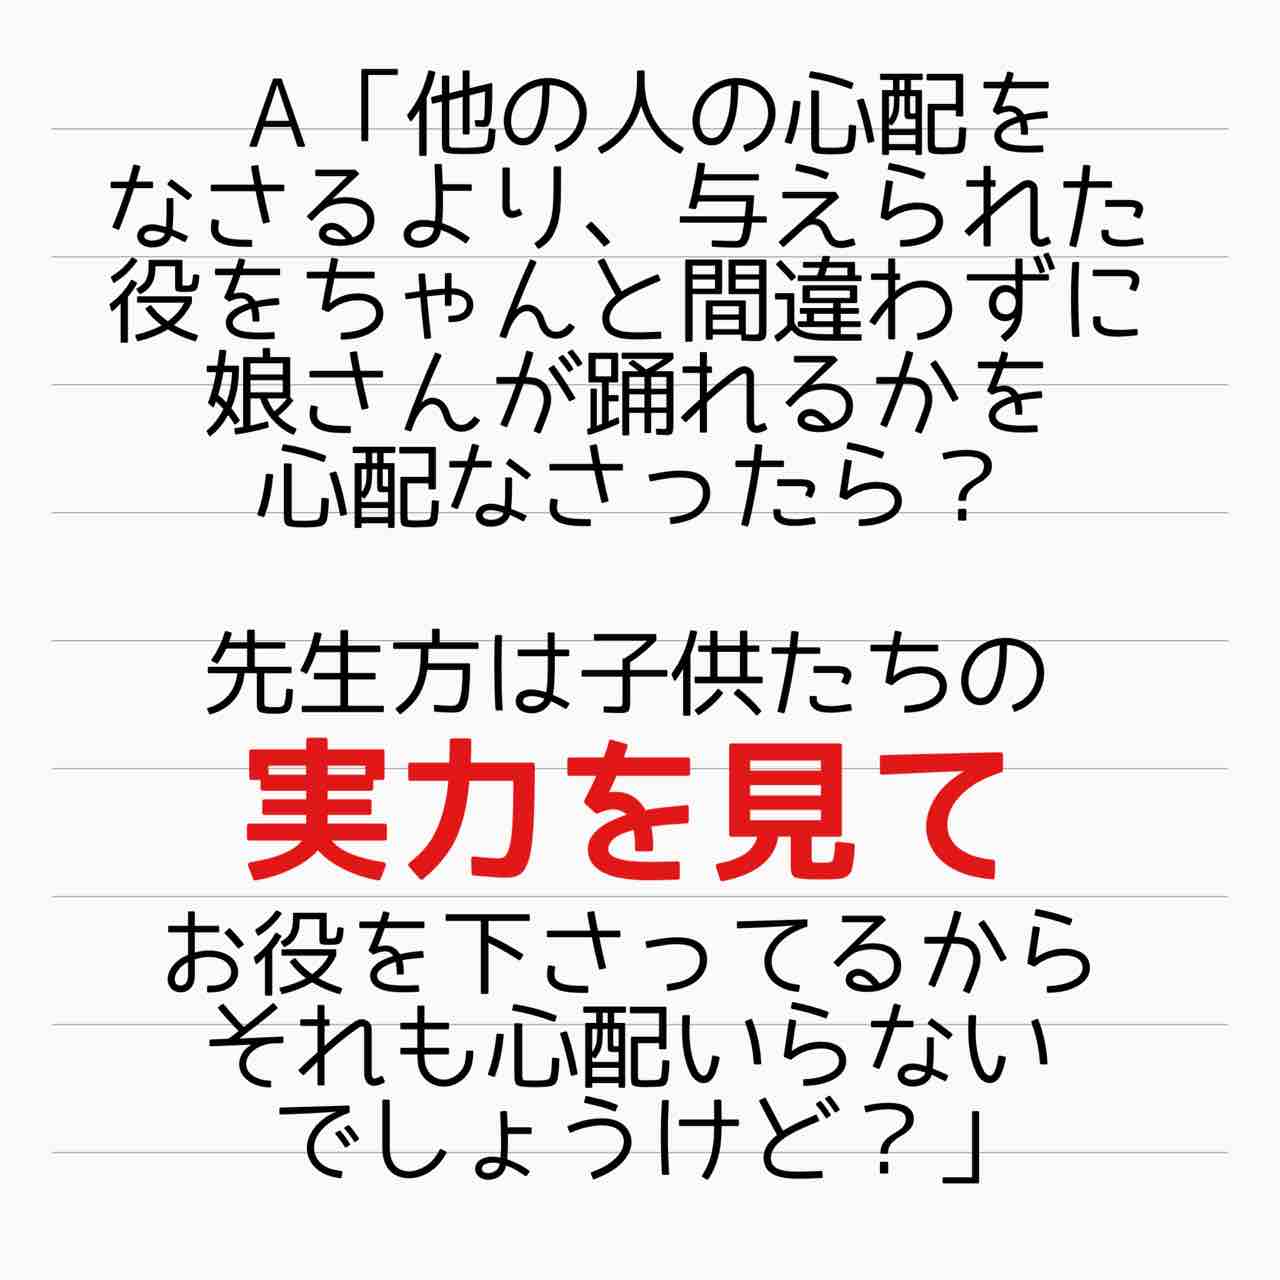 A「他の人の心配を
なさるより、与えられた
役をちゃんと間違わずに
娘さんが踊れるかを
心配なさったら？
先生方は子供たちの
実力を見て
お役を下さってるから
それも心配いらない
でしょうけど？」